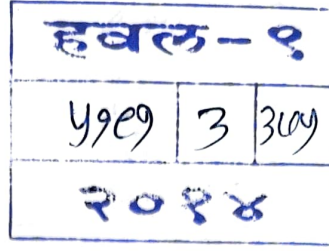 हवल-१
५१९१ ३
२०१४